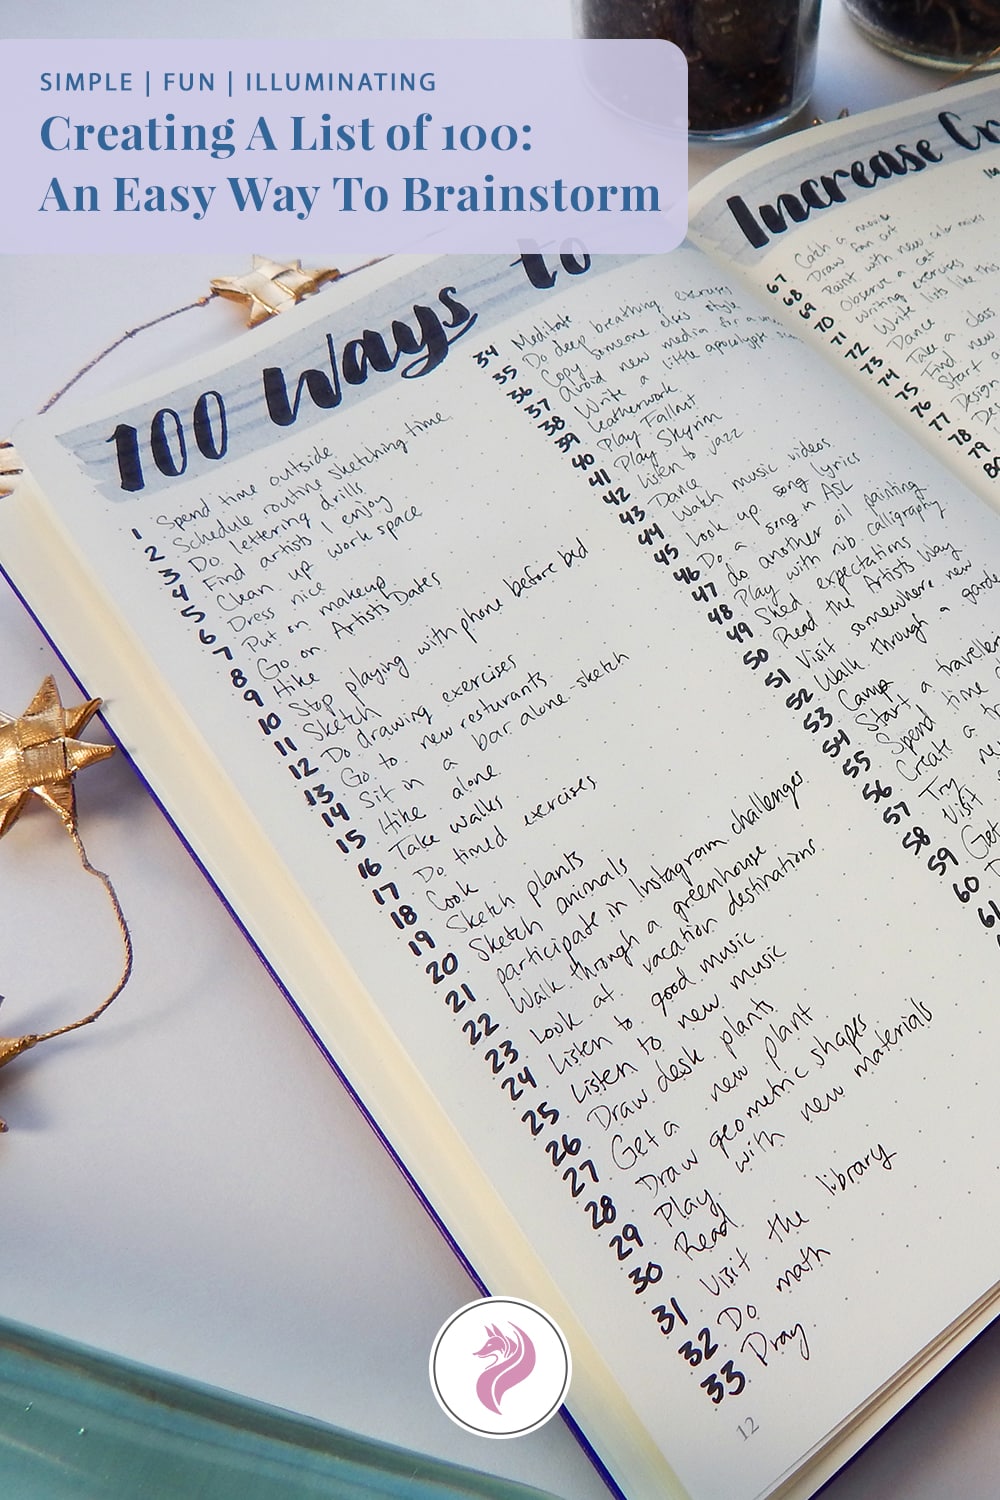 SIMPLE | FUN | ILLUMINATING
Creating A List of 100:
An Easy Way To Brainstorm
100 Ways to
1 Spend time outside
2 Schedule routine sketching time
3 Do lettering drills
4 Find artists I enjoy
5 Clean up work space
6 Dress nice
7 Put on makeup
8 Go on Artists Dates
9 Hike
10 Stop playing with phone before bed
11 Sketch
12 Do drawing exercises
13 Go to new resturants
14 Sit in a bar alone-sketch
15 Hike alone
16 Take walks
17 Do timed exercises
18 Cook
19 Sketch plants
20 Sketch animals
21 participate in Instagram challenges
22 Walk through a greenhouse
23 Look at vacation destinations
24 Listen to good music
25 Listen to new music
26 Draw desk plants
27 Get a new plant
28 Draw geometric shapes
29 Play with new materials
30 Read
31 Visit the library
32 Do math
33 Pray
34 Meditate
35 Do deep breathing exercises
36 Copy someone elses style
37 Avoid new media for a
38 Write a little apocalypse
39 Leatherwork
40 Play Fallout
41 Play Skyrim
42 Listen to jazz
43 Dance
44 Watch music videos
45 Look up song lyrics
46 Do a song in ASL
47 do another oil painting
48 Play with nib calligraphy
49 Shed expectations
50 Read the Artists Way
51 Visit somewhere new
52 Walk through a garde
53 Camp
54 Start a traveller
55 Spend time
56 Create a
57 Try
58 Visit
59 Get
60
61
12
Increase Cr
67 Catch a movie
68 Draw fan art
69 Paint with new color mixes
70 Observe a cat
71 writing exercises
72 Write lists like this
73 Dance
74 Take a class
75 Find new
76 Start a
77 Design
78 De
79
80